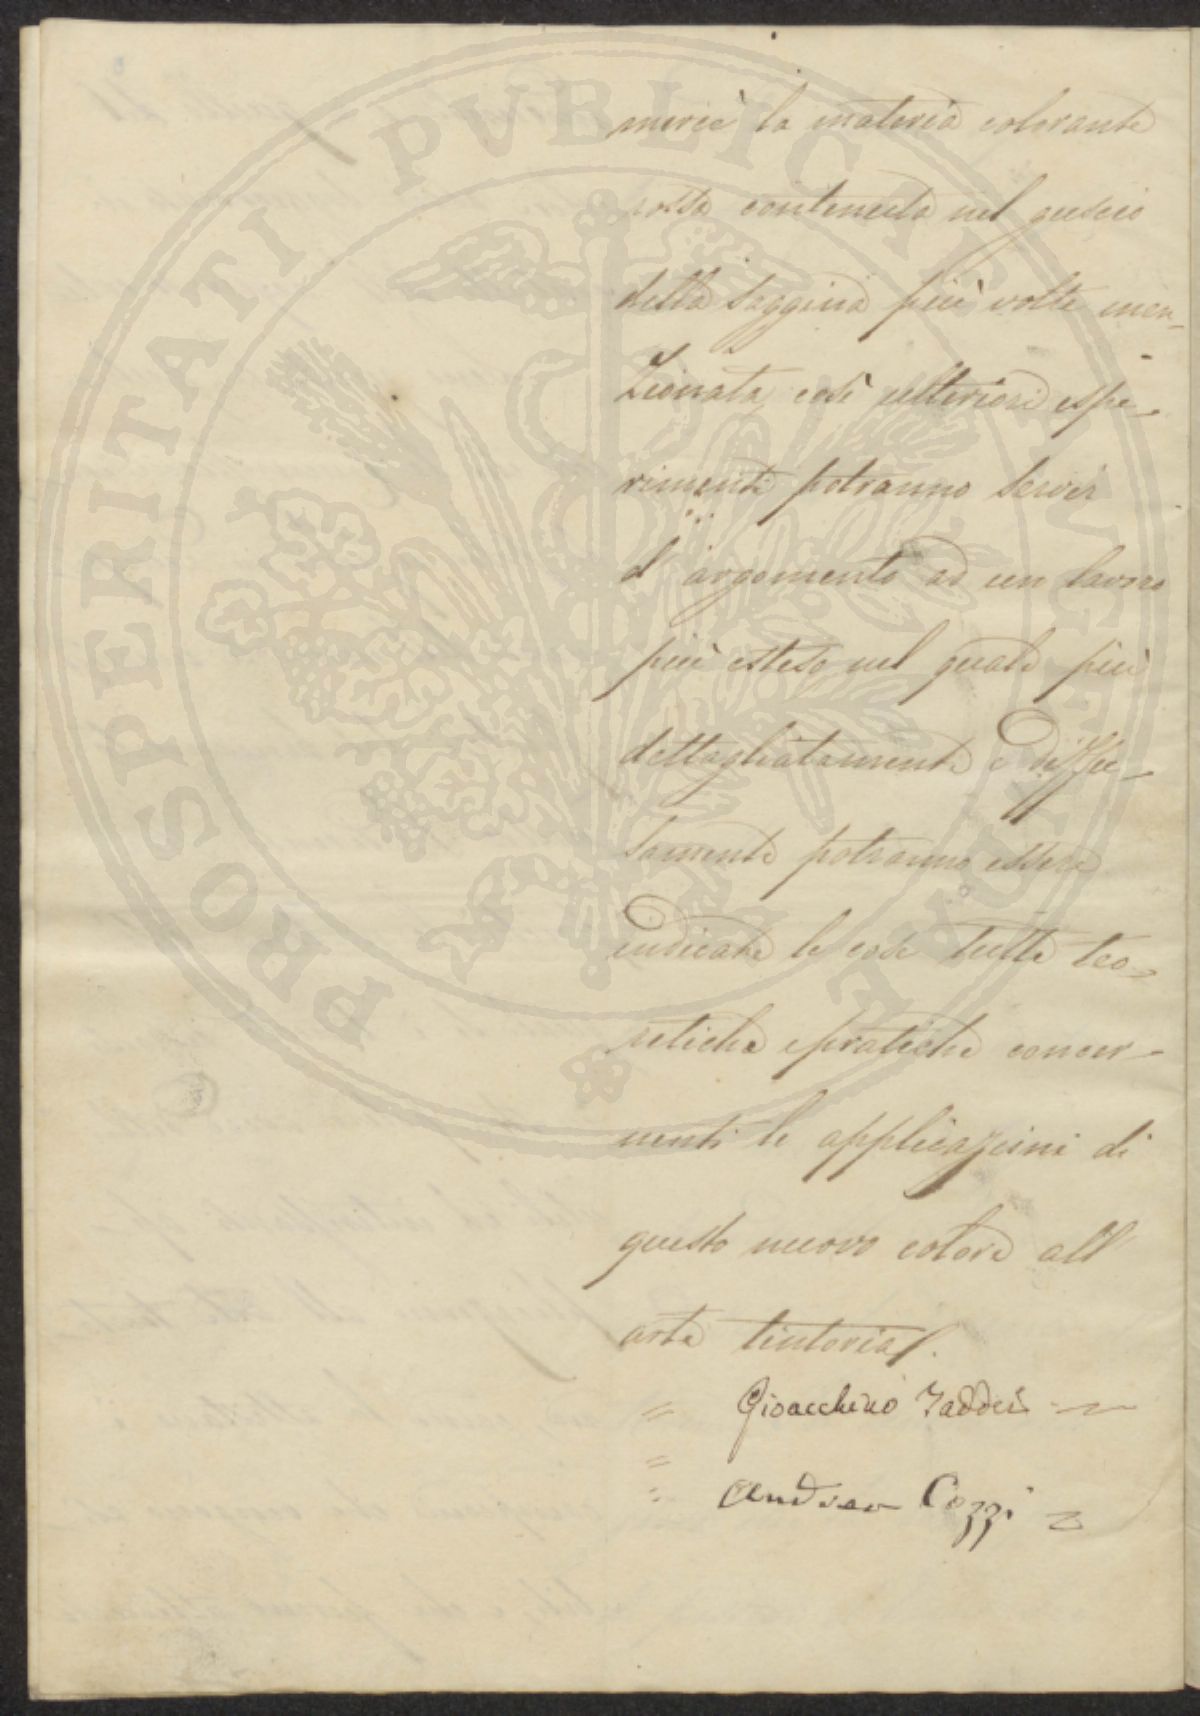 mercè la materia colorante
rossa contenuta nel guscio
della saggina più volte men-
zionata, così ulteriori espe-
rimenti potranno servir
d'argomento ad un lavoro
più esteso, nel quale più
dettagliatamente e diffu-
samente potranno essere
indicate le cose tutte teo-
retiche e pratiche concer-
nenti le applicazioni di
questo nuovo colore all'
arte tintoria.
Gioacchino Taddei
Andrea Cozzi
PROSPERITATI PUBLICAE AUGENDAE